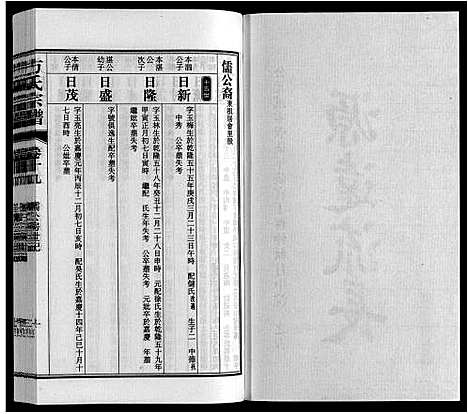 儒公裔
十三世
本公子
日新
字玉梅生於乾隆五十五年庚戌三月二十三日午時 配儲氏 生子二 中德
中秀 公卒葬失考
本湛公次子
日隆
字玉林生於乾隆五十八年癸丑十二月二十八日申時 元配徐氏生於乾隆五十九年
甲寅正月初七日寅時 繼配 氏生年失考 元妣卒於嘉慶 年葬
公卒葬失考
堪公幼子
日盛
字號俱逸生配卒葬失考
本倩公子
日茂
字玉亮生於嘉慶元年丙辰十二月初七日亥時 配吳氏生於嘉慶十四年己巳十月十
七日酉時 公妣卒葬
方氏宗譜
卷十九
儒公房世記